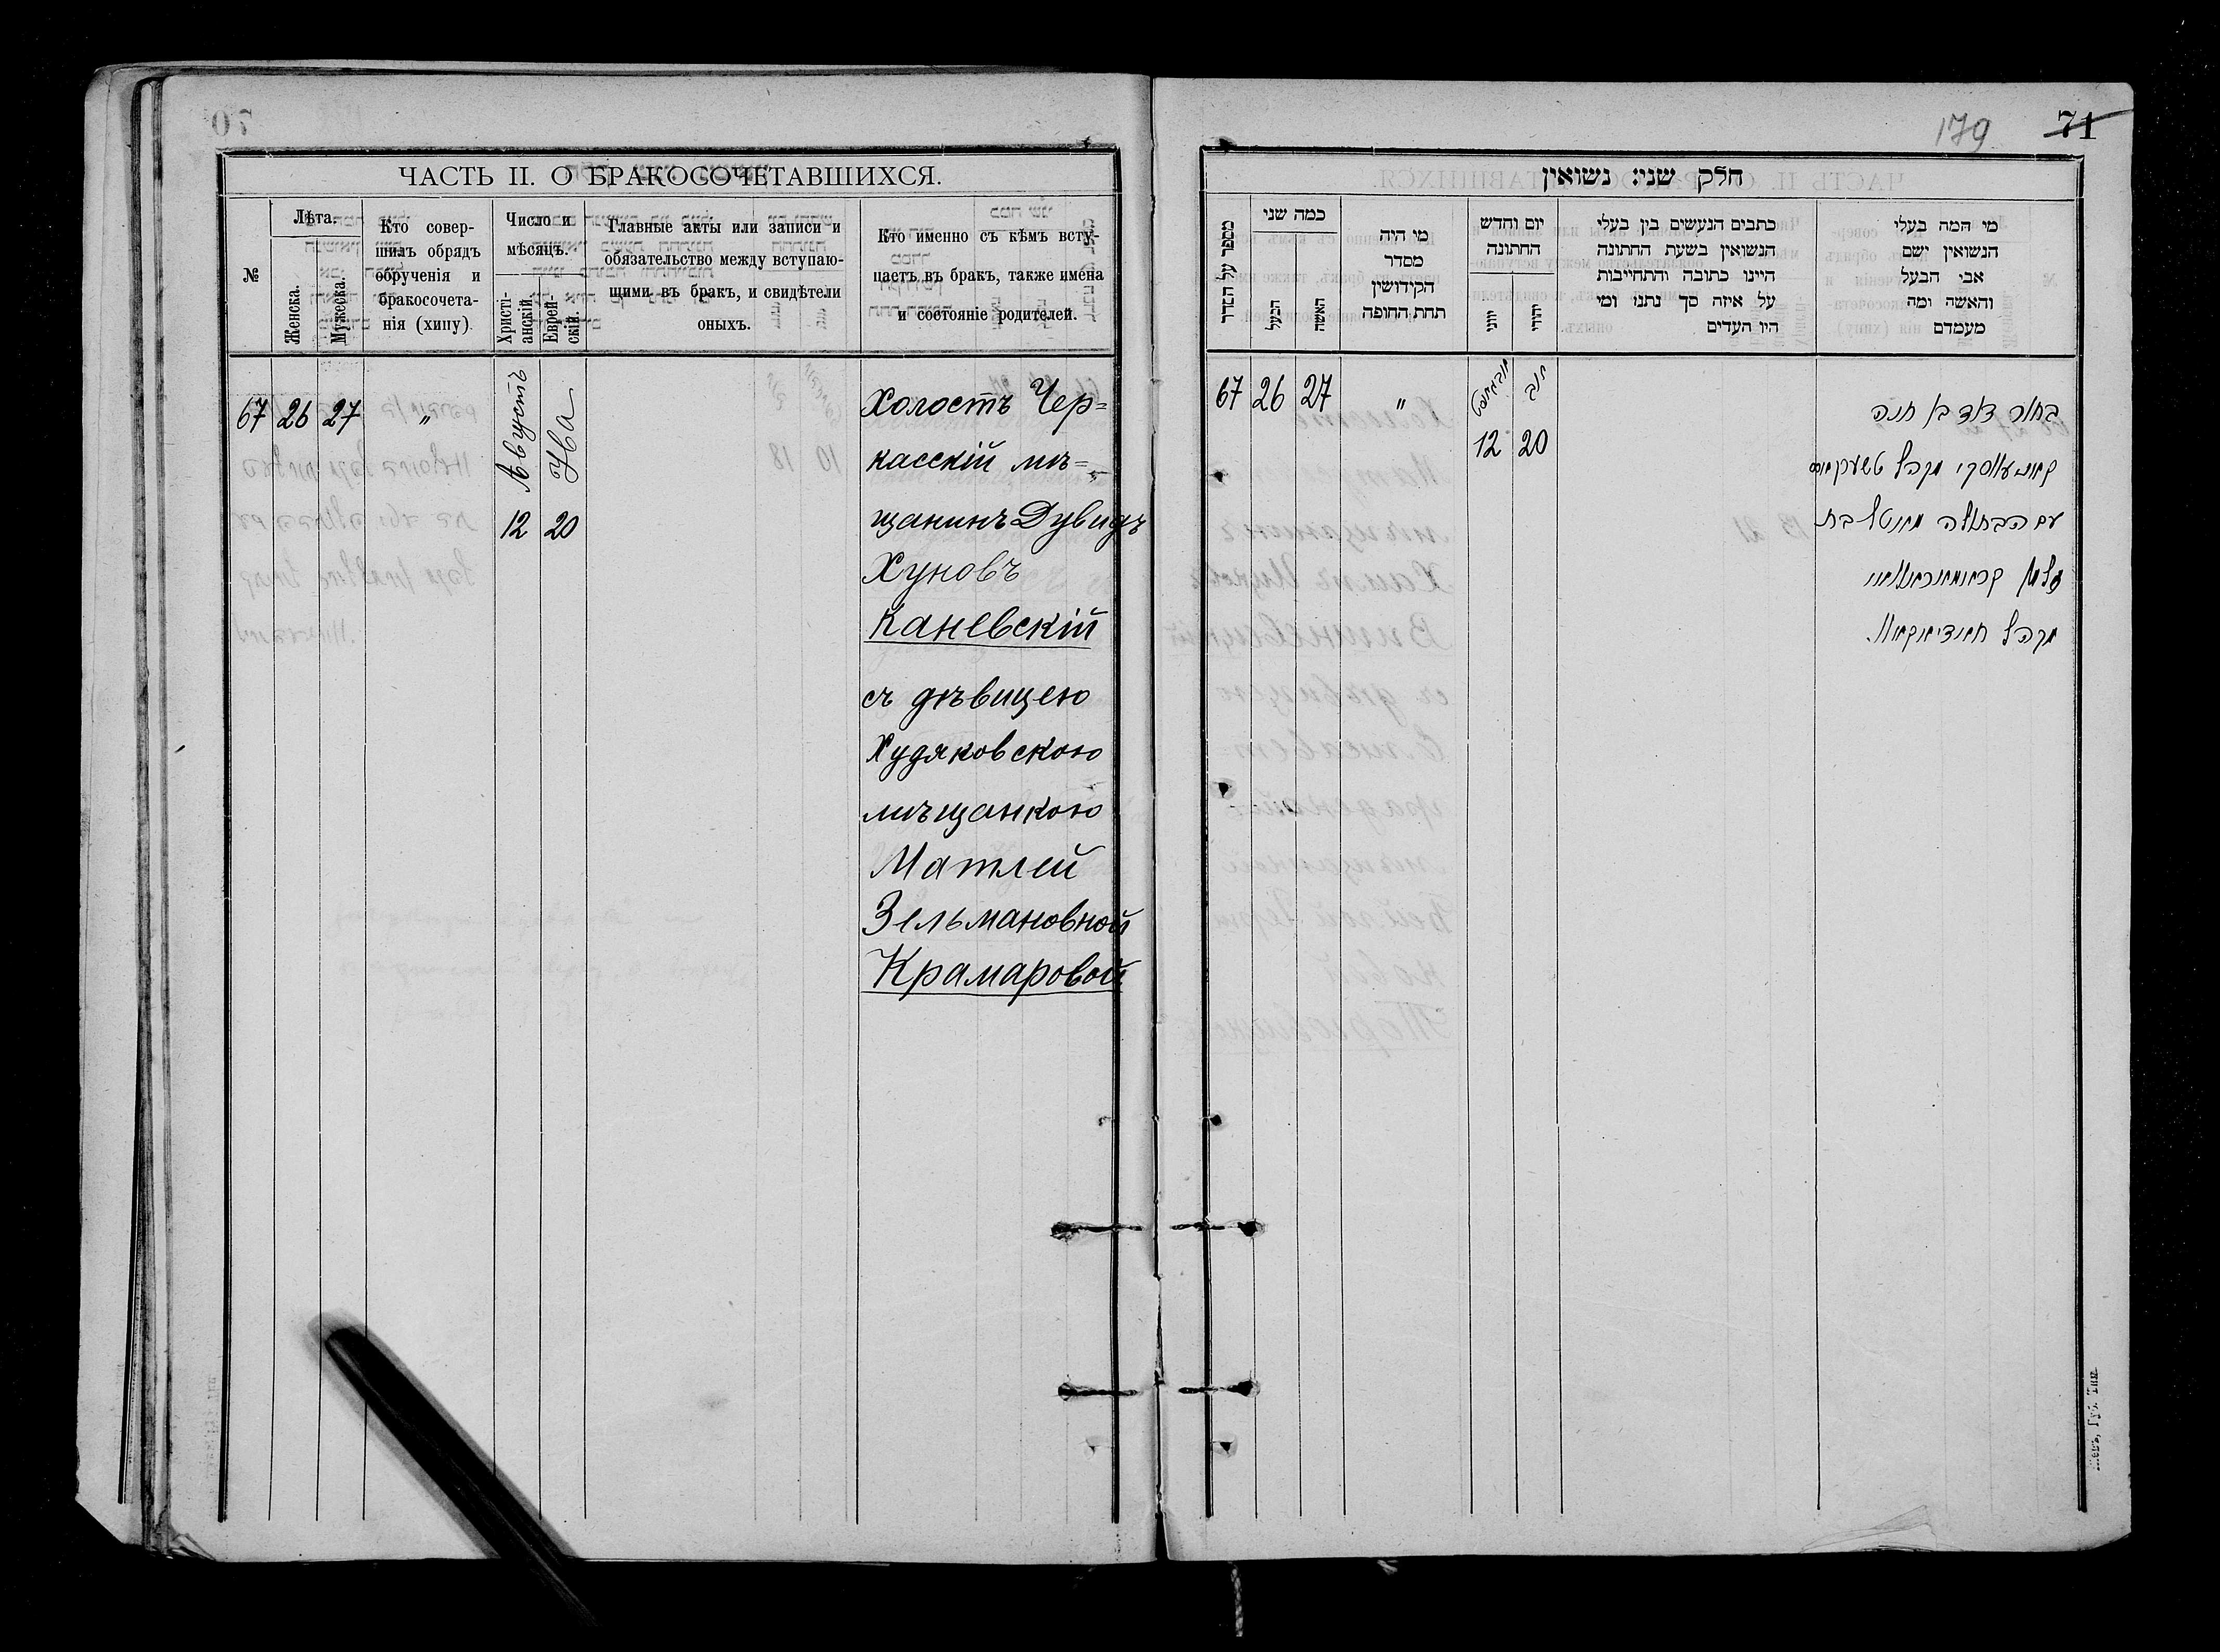 ЧАСТЬ II. О БРАКОСОЧЕТАВШИХСЯ.
№
Лѣта.
Женска.
Мужеска.
Кто совер-
шилъ обрядъ
обрученія и
бракосочета-
нія (хипу).
Число и
мѣсяцъ.
Христі-
анскій.
Еврей-
скій.
Главные акты или записи и
обязательство между вступаю-
щими въ бракъ, и свидѣтели
оныхъ.
Кто именно съ кѣмъ всту-
паетъ въ бракъ, также имена
и состояніе родителей.
67 26 27 „
Августъ
12
Ува
20
Холостъ Чер=
касскій мѣ=
щанинъ Дувидъ
Хуновъ
Каневскій
съ дѣвицею
Худяковскою
мѣщанкою
Матлей
Зельмановной
Крамаровой
179 71
חלק שני: נשואין
מספר על הסדר
כמה שני
הבעל
האשה
מי היה
מסדר
הקידושין
תחת החופה
יום וחדש
החתונה
יווני
יהודי
כתבים הנעשים בין בעלי
הנשואין בשעת החתונה
היינו כתובה והתחייבות
על איזה סך נתנו ומי
היו העדים
מי המה בעלי
הנשואין ושם
אבי הבעל
והאשה ומה
מעמדם
67 26 27 „
אווגוסט
12
אב
20
בחור דוד בן חנה
קאנעווסקי מקהל טשערקאס
עם הבתולה מאטל בת
זלמן קראמאראוואי
מקהל חאודיאקאוו.